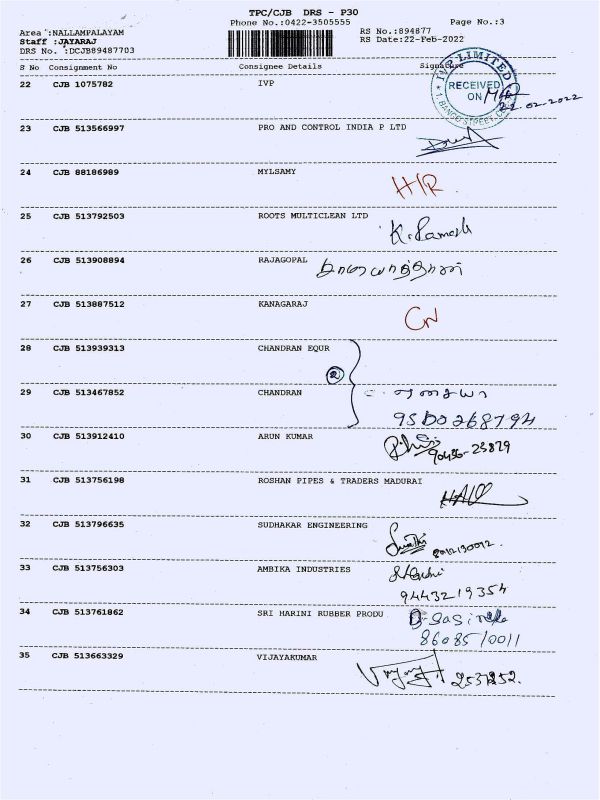 TPC/CJB DRS - P30
Phone No.:0422-3505555
Page No.:3
Area :NALLAMPALAYAM
RS No.:894877
Staff :JAYARAJ
RS Date:22-Feb-2022
DRS No. :DCJB89487703
S No Consignment No Consignee Details Signature
22 CJB 1075782 IVP
IVP LIMITED
RECEIVED
ON
22.02.2022
23 CJB 513566997 PRO AND CONTROL INDIA P LTD
24 CJB 88186989 MYLSAMY
H/R
25 CJB 513792503 ROOTS MULTICLEAN LTD
K. Ramesh
26 CJB 513908894 RAJAGOPAL
27 CJB 513887512 KANAGARAJ
28 CJB 513939313 CHANDRAN EQUR
2
29 CJB 513467852 CHANDRAN
9500268794
30 CJB 513912410 ARUN KUMAR
31 CJB 513756198 ROSHAN PIPES & TRADERS MADURAI
32 CJB 513796635 SUDHAKAR ENGINEERING
33 CJB 513756303 AMBIKA INDUSTRIES
9443219354
34 CJB 513761862 SRI HARINI RUBBER PRODU
8608510011
35 CJB 513663329 VIJAYAKUMAR